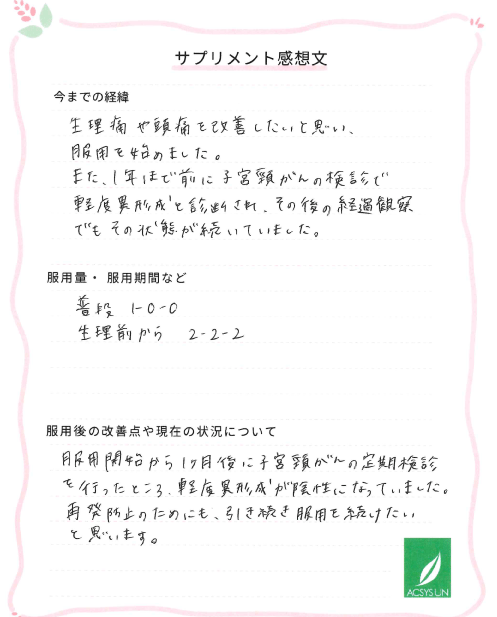 サプリメント感想文
今までの経緯
生理痛や頭痛を改善したいと思い、
服用を始めました。
また、1年ほど前に子宮頸がんの検診で
軽度異形成と診断され、その後の経過観察
でもその状態が続いていました。
服用量・服用期間など
普段 1-0-0
生理前から 2-2-2
服用後の改善点や現在の状況について
服用開始から1ヶ月後に子宮頸がんの定期検診
を行ったところ、軽度異形成が陰性になっていました。
再発防止のためにも、引き続き服用を続けたい
と思います。
ACSYS UN